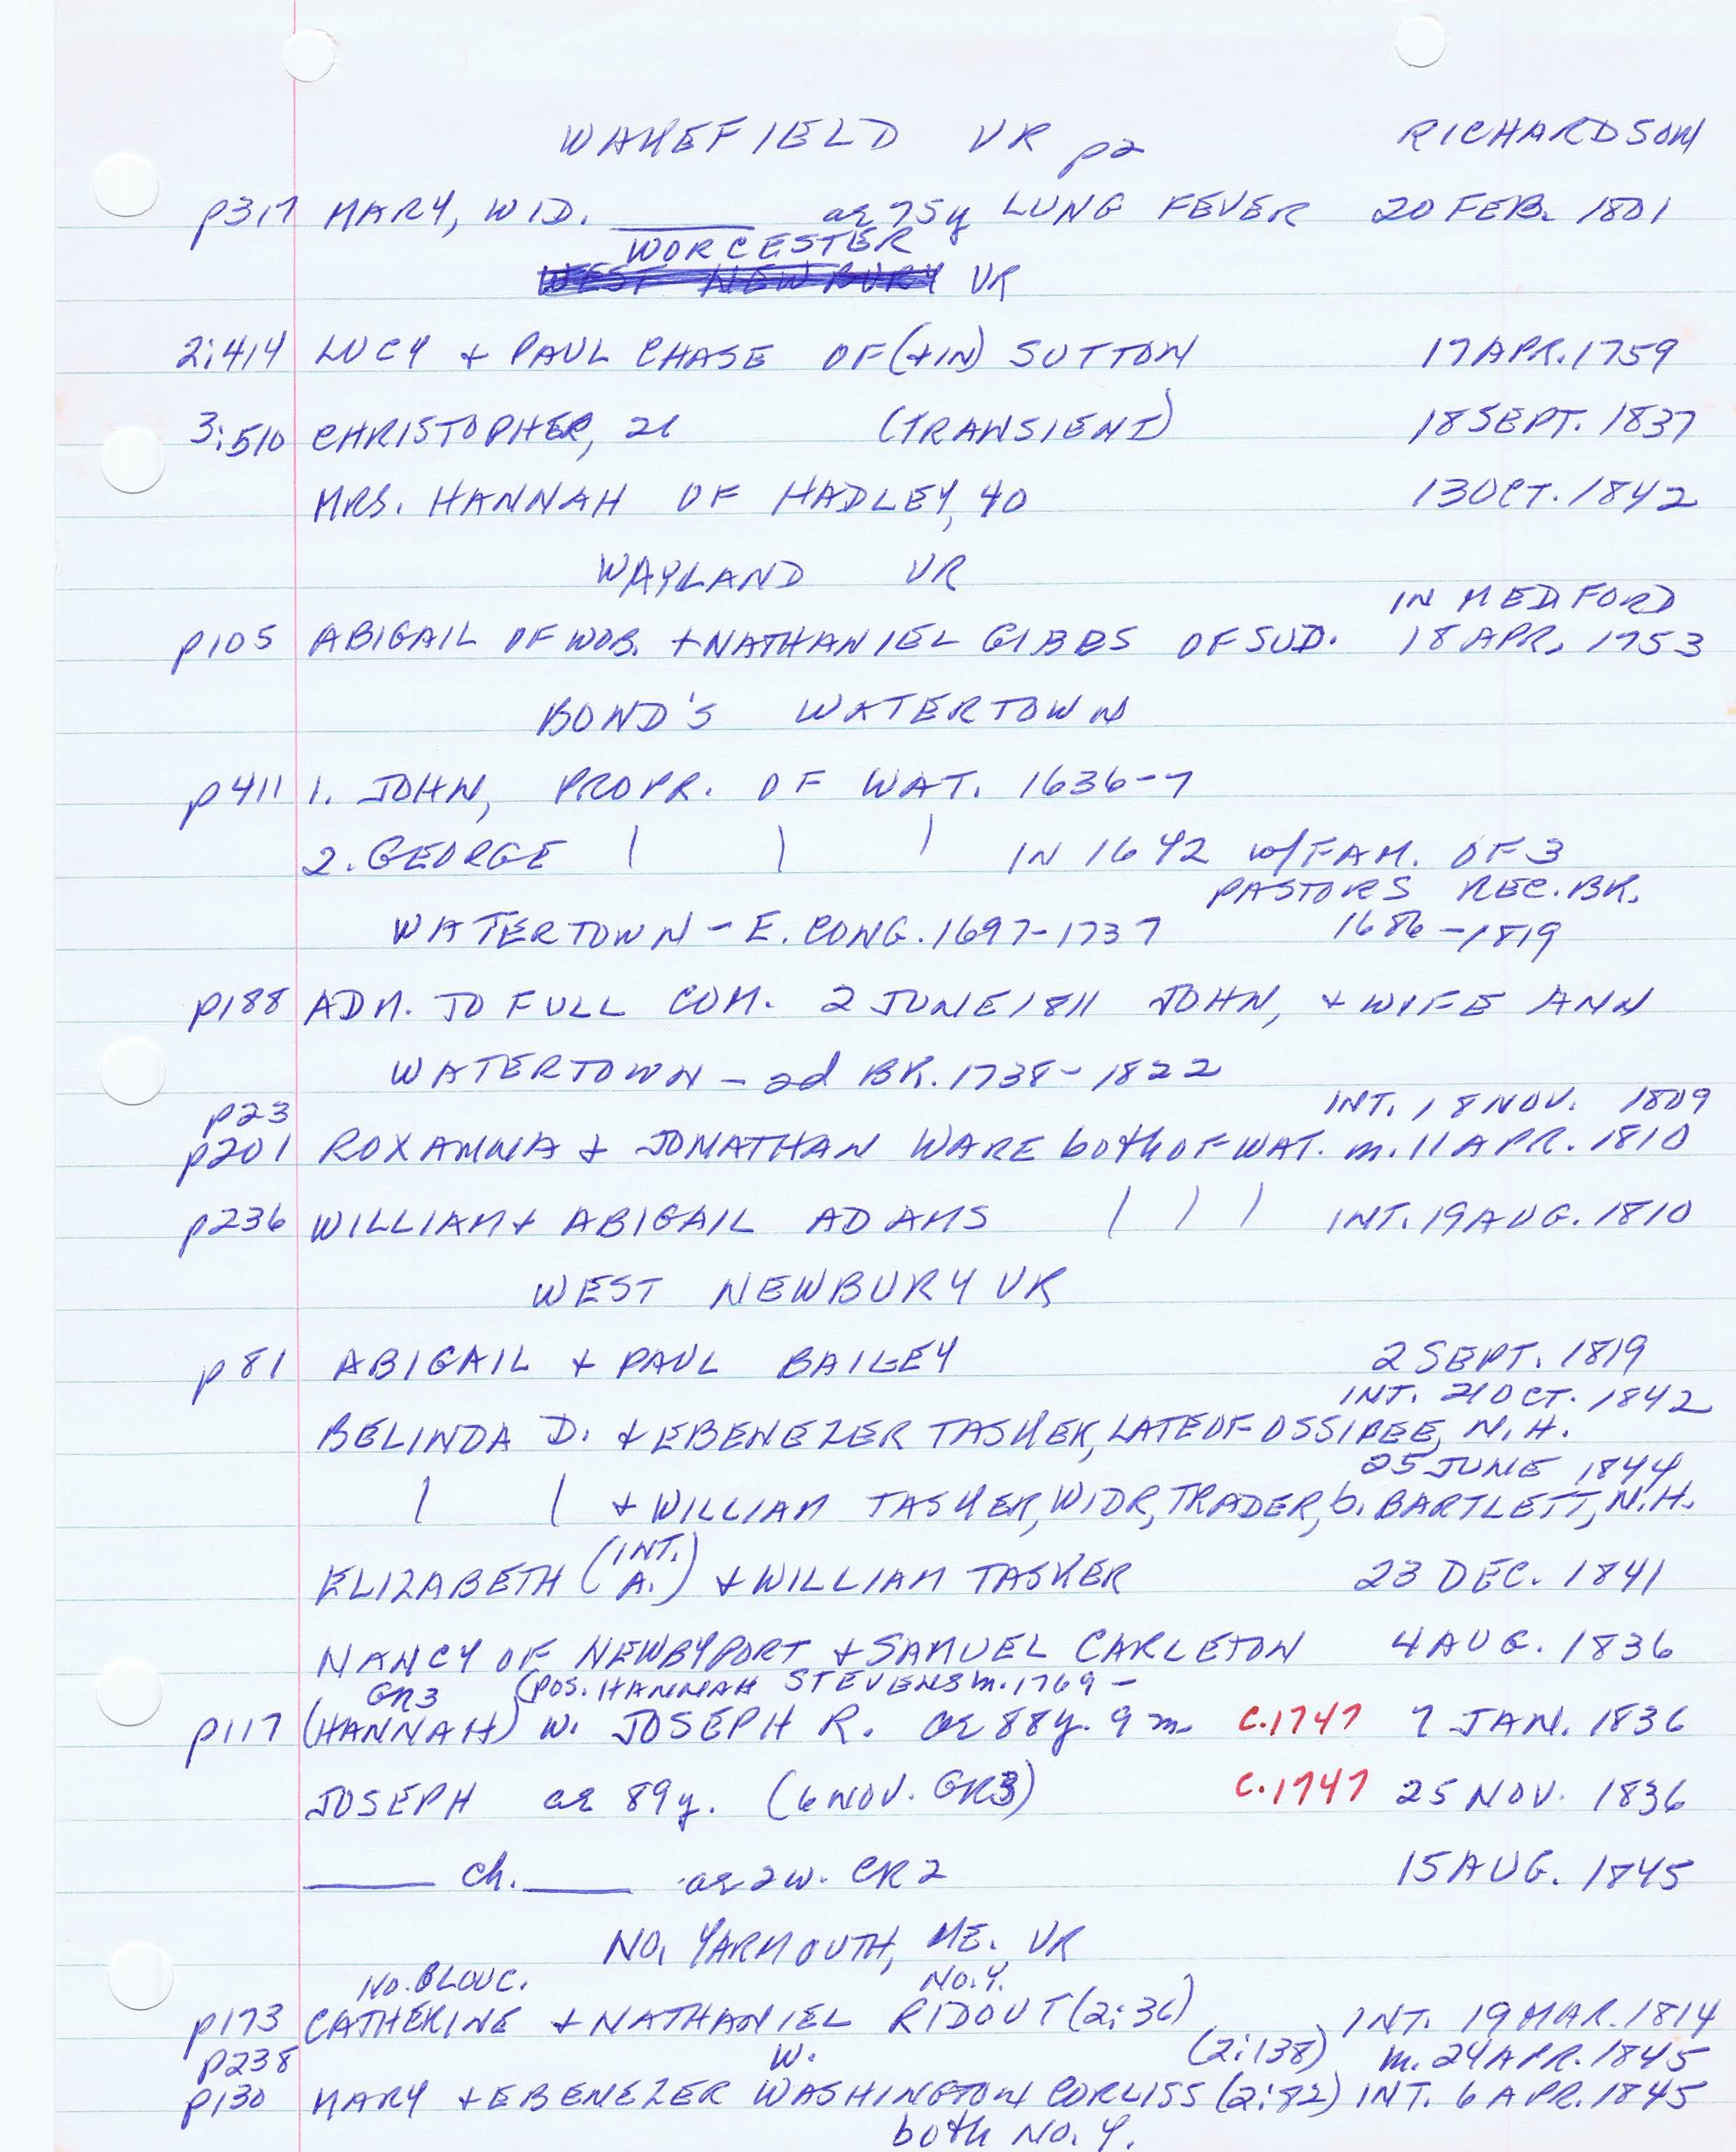 WAKEFIELD VR p2 RICHARDSON
p317 MARY, WID. ______ ae 75y LUNG FEVER 20 FEB. 1801
WORCESTER
WEST NEWBURY VR
2:414 LUCY + PAUL CHASE OF (+IN) SUTTON 17 APR. 1759
3:510 CHRISTOPHER, 21 (TRANSIENT) 18 SEPT. 1837
MRS. HANNAH OF HADLEY, 40 13 OCT. 1842
WAYLAND VR
IN MEDFORD
p105 ABIGAIL OF WOB. + NATHANIEL GIBBS OF SUD. 18 APR. 1753
BOND'S WATERTOWN
p411 1. JOHN, PROPR. OF WAT. 1636-7
2. GEORGE | | | IN 1642 w/FAM. OF 3
PASTORS REC. BK.
WATERTOWN - E. CONG. 1697-1737 1686-1819
p188 ADM. TO FULL COM. 2 JUNE 1811 JOHN, + WIFE ANN
WATERTOWN - 2d BK. 1738-1822
p23 INT. 18 NOV. 1809
p201 ROXANNA + JONATHAN WARE both OF WAT. m. 11 APR. 1810
p236 WILLIAM + ABIGAIL ADAMS | | | INT. 19 AUG. 1810
WEST NEWBURY VR
p81 ABIGAIL + PAUL BAILEY 2 SEPT. 1819
INT. 21 OCT. 1842
BELINDA D. + EBENEZER TASKER, LATE OF OSSIPEE, N.H.
25 JUNE 1844
| | + WILLIAM TASKER, WIDR, TRADER, b. BARTLETT, N.H.
ELIZABETH (INT. A.) + WILLIAM TASKER 23 DEC. 1841
NANCY OF NEWBYPORT + SAMUEL CARLETON 4 AUG. 1836
GR3 (POS. HANNAH STEVENS m. 1769 -
p117 (HANNAH) w. JOSEPH R. ae 88y. 9m c.1747 7 JAN. 1836
JOSEPH ae 89y. (6 NOV. GR3) c.1747 25 NOV. 1836
____ ch. ____ ae 2w. CR2 15 AUG. 1845
NO. YARMOUTH, ME. VR
NO. GLOUC. NO. Y.
p173 CATHERINE + NATHANIEL RIDOUT (2:36) INT. 19 MAR. 1814
p238 W. (2:138) m. 24 APR. 1845
p130 MARY + EBENEZER WASHINGTON CORLISS (2:82) INT. 6 APR. 1845
both NO. Y.